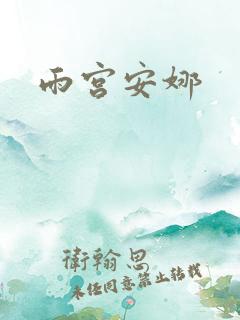 雨宫安娜
衛翰思
未经同意禁止转载